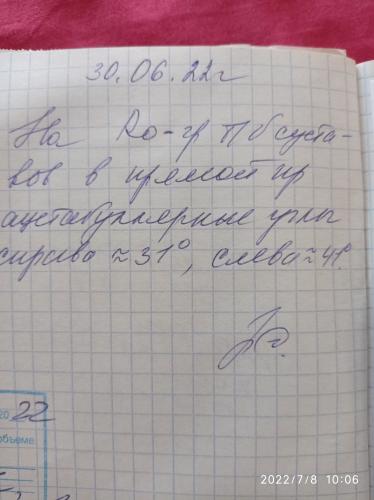 30.06.22г
На Ro-гр ТБ суста-
вов в прямой пр
ацетабуллярные углы
справа ≈ 31°, слева ≈ 41°.
20 22
объеме
2022/7/8 10:06